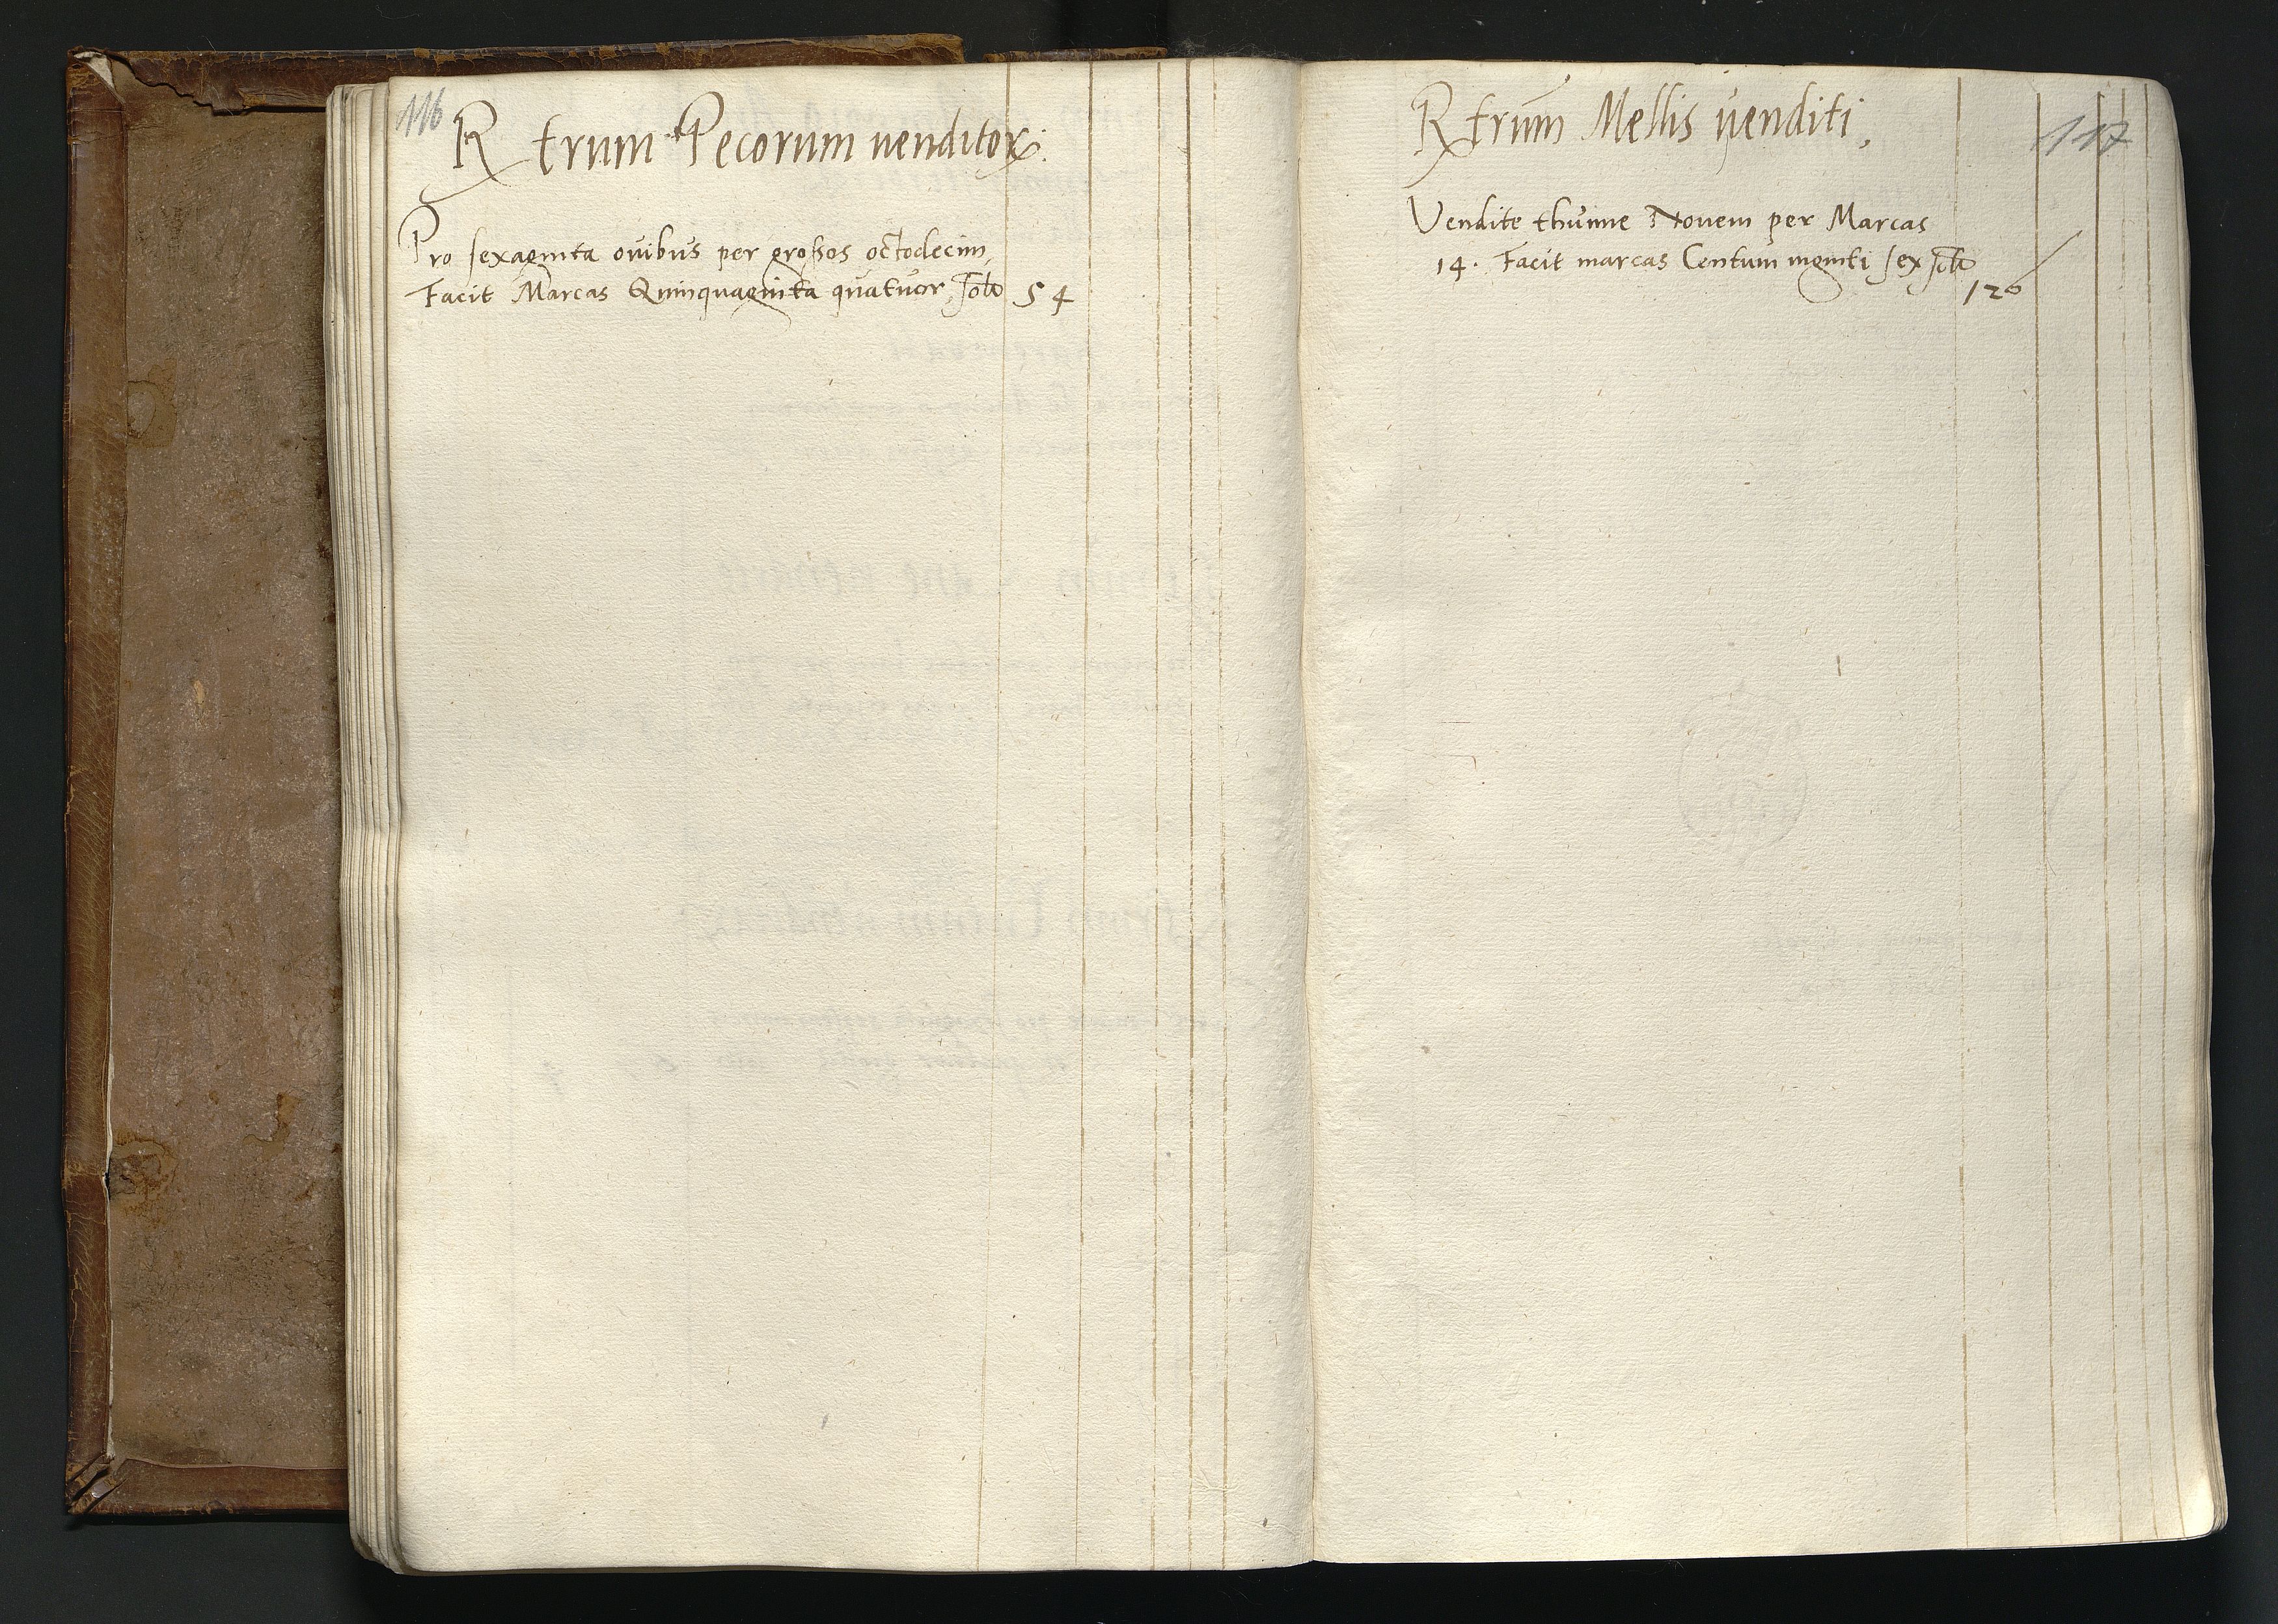 116
Rtrum Pecorum venditor:
Pro sexaginta ovibus per grossos octodecim,
Facit Marcas Quinquaginta quatuor, 54
117
Rtrum Mellis venditi,
Vendite thunne Novem per Marcas
14. Facit marcas Centum viginti sex
126